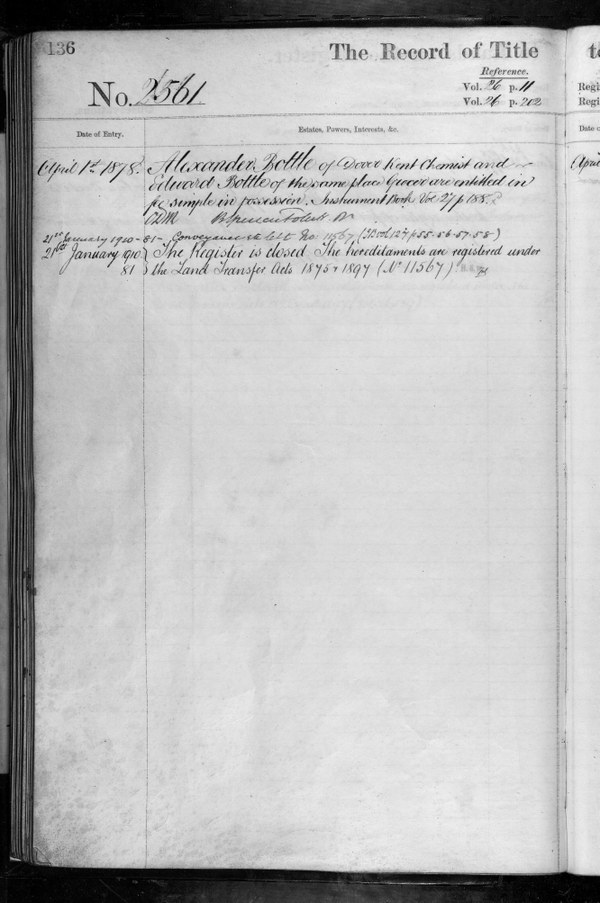 136
The Record of Title
Reference.
No. 2561
Vol. 26 p. 11
Vol. 26 p. 202
Date of Entry.
Estates, Powers, Interests, &c.
April 1st 1878. Alexander Bottle of Dover Kent Chemist and
Edward Bottle of the same place Grocer are entitled in
fee simple in possession. Instrument Book Vol 27 p 188.
21st January 1910 - 81 - Conveyance No 11567 (Book 127 p 55-56-57-58-)
21st January 1910 The Register is closed. The hereditaments are registered under
81 the Land Transfer Acts 1875 & 1897 (No 11567)
Regi
Regi
Date o
April